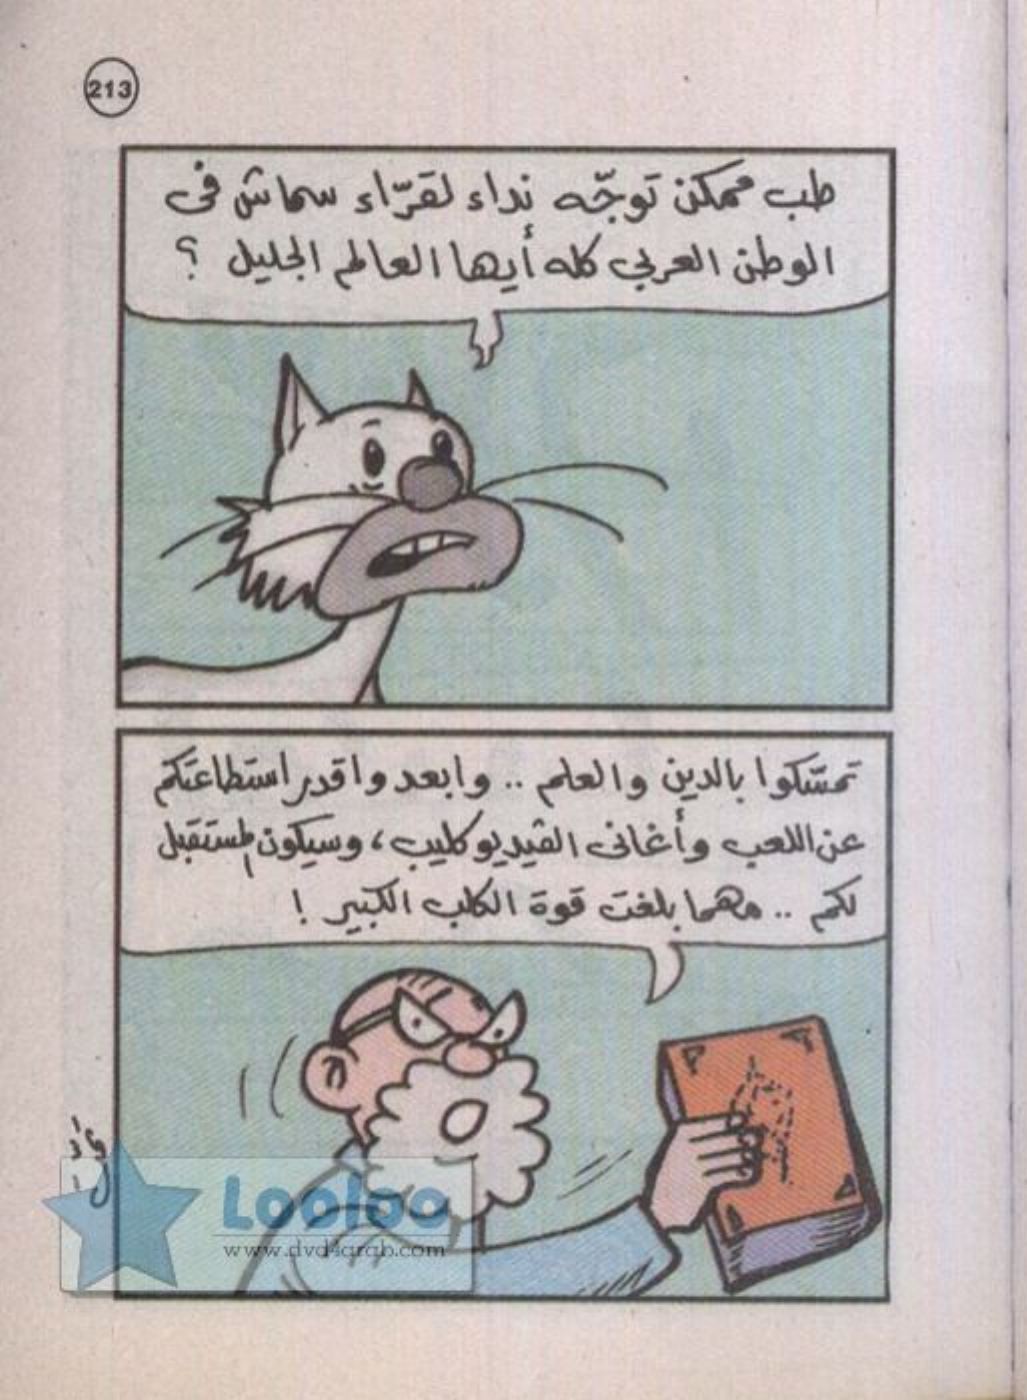 213
طب ممكن توجّه نداء لقرّاء سماش فى
الوطن العربي كله أيها العالم الجليل ؟
تمسّكوا بالدين والعلم .. وابعدوا قدر استطاعتكم
عن اللعب وأغانى الڤيديو كليب، وسيكون المستقبل
لكم .. مهما بلغت قوة الكلب الكبير !
Looloo
www.dvd4arab.com